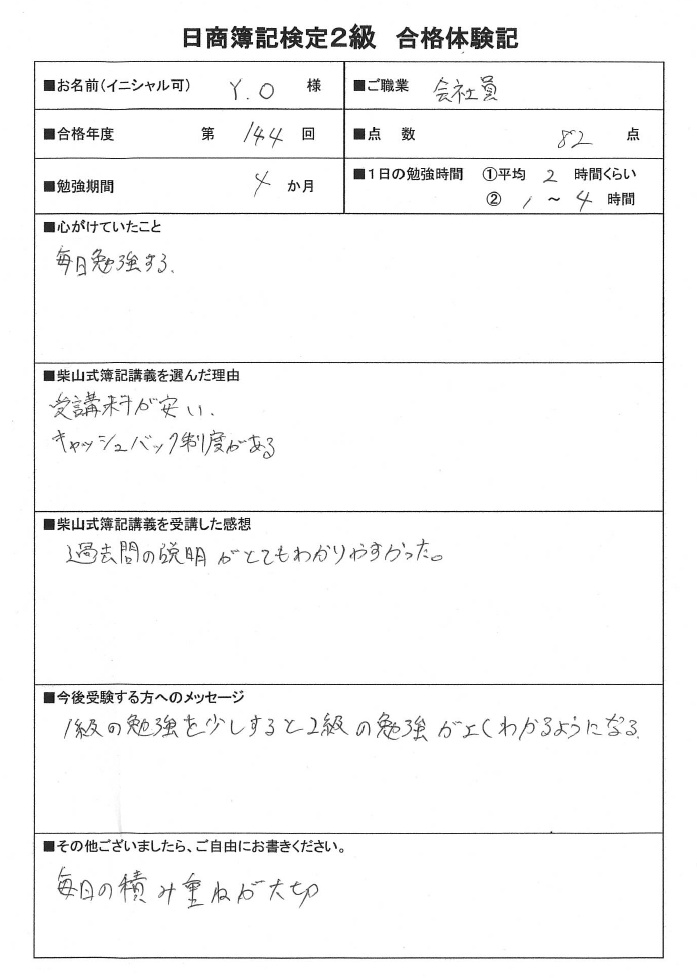 日商簿記検定2級 合格体験記
■お名前(イニシャル可) Y.O 様 ■ご職業 会社員
■合格年度 第 144 回 ■点 数 82 点
■勉強期間 4 か月 ■1日の勉強時間 ①平均 2 時間くらい
② 1 ～ 4 時間
■心がけていたこと
毎日勉強する.
■柴山式簿記講義を選んだ理由
受講料が安い.
キャッシュバック制度がある
■柴山式簿記講義を受講した感想
過去問の説明がとてもわかりやすかった。
■今後受験する方へのメッセージ
1級の勉強を少しすると2級の勉強がよくわかるようになる.
■その他ございましたら、ご自由にお書きください。
毎日の積み重ねが大切